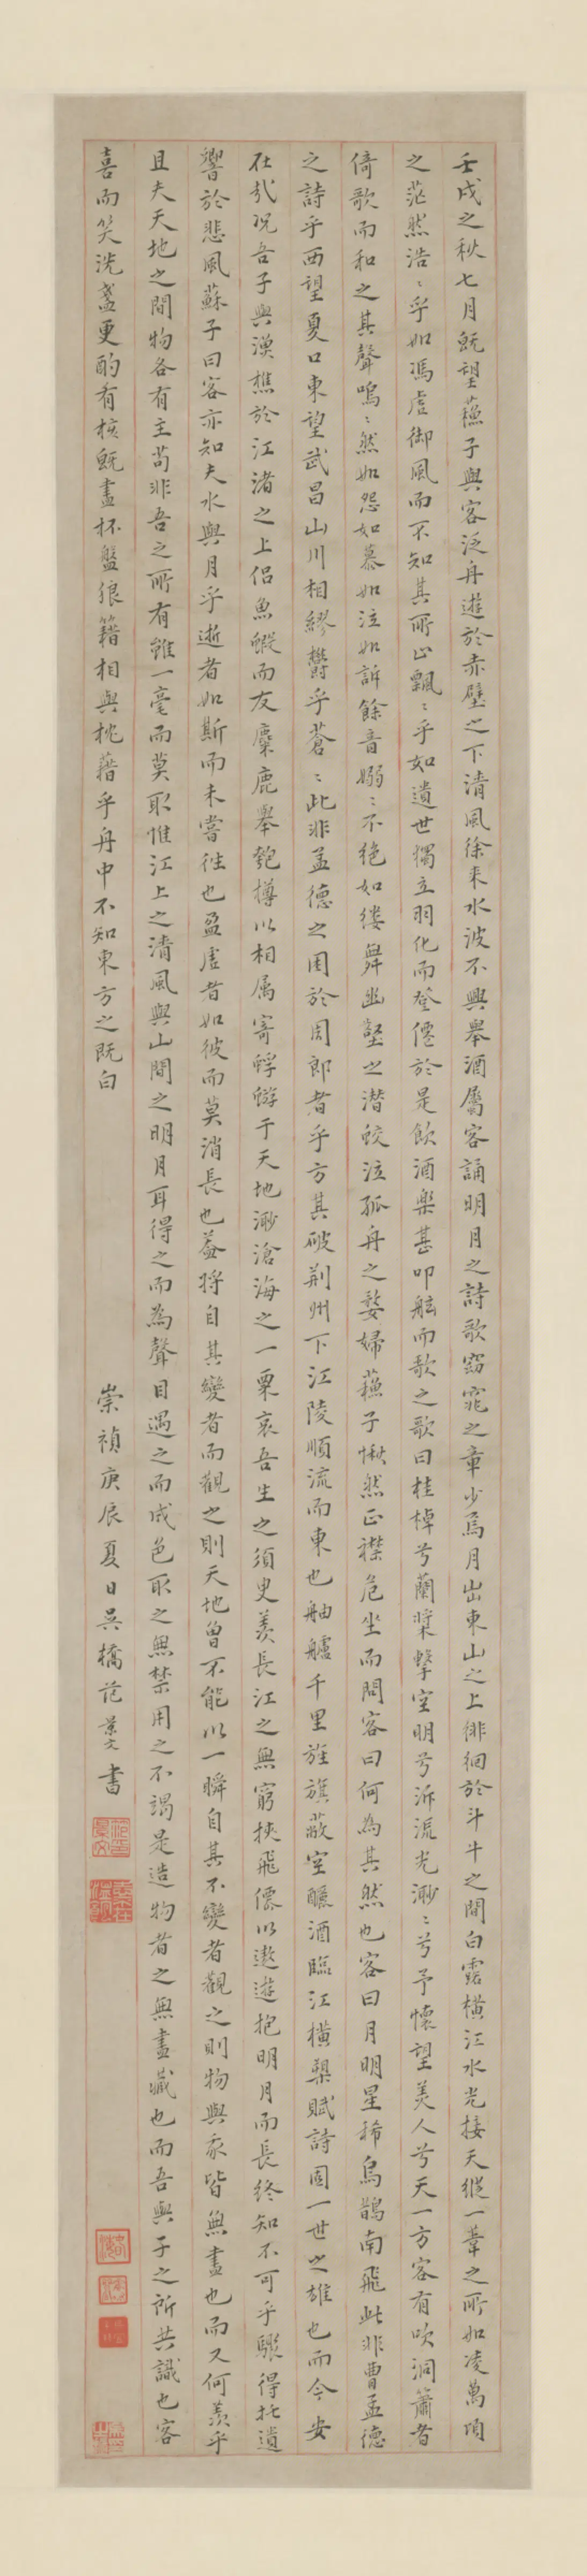 壬戌之秋七月既望蘓子與客泛舟遊於赤壁之下清風徐来水波不興舉酒屬客誦明月之詩歌窈窕之章少焉月出東山之上徘徊於斗牛之間白露橫江水光接天縱一葦之所如凌萬頃
之茫然浩〻乎如馮虛御風而不知其所止飄〻乎如遺世獨立羽化而登僊於是飲酒樂甚叩舷而歌之歌曰桂棹兮蘭槳擊空明兮泝流光渺〻兮予懷望美人兮天一方客有吹洞簫者
倚歌而和之其聲嗚〻然如怨如慕如泣如訴餘音嫋〻不絶如縷舞幽壑之潛蛟泣孤舟之嫠婦蘓子愀然正襟危坐而問客曰何為其然也客曰月明星稀烏鵲南飛此非曹孟德
之詩乎西望夏口東望武昌山川相繆欝乎蒼〻此非孟德之困於周郎者乎方其破荆州下江陵順流而東也舳艫千里旌旗蔽空釃酒臨江橫槊賦詩固一世之雄也而今安
在哉况吾子與漁樵於江渚之上侣魚蝦而友麋鹿舉匏樽以相属寄蜉蝣于天地渺滄海之一粟哀吾生之須臾羨長江之無窮挾飛僊以遨遊抱明月而長終知不可乎驟得托遺
響於悲風蘇子曰客亦知夫水與月乎逝者如斯而未嘗徃也盈虛者如彼而莫消長也葢将自其變者而觀之則天地曾不能以一瞬自其不變者觀之則物與我皆無盡也而又何羨乎
且夫天地之間物各有主苟非吾之所有雖一毫而莫取惟江上之清風與山間之明月耳得之而為聲目遇之而成色取之無禁用之不竭是造物者之無盡藏也而吾與子之所共識也客
喜而笑洗盞更酌肴核既盡杯盤狼籍相與枕藉乎舟中不知東方之既白
崇禎庚辰夏日吳橋范景文書